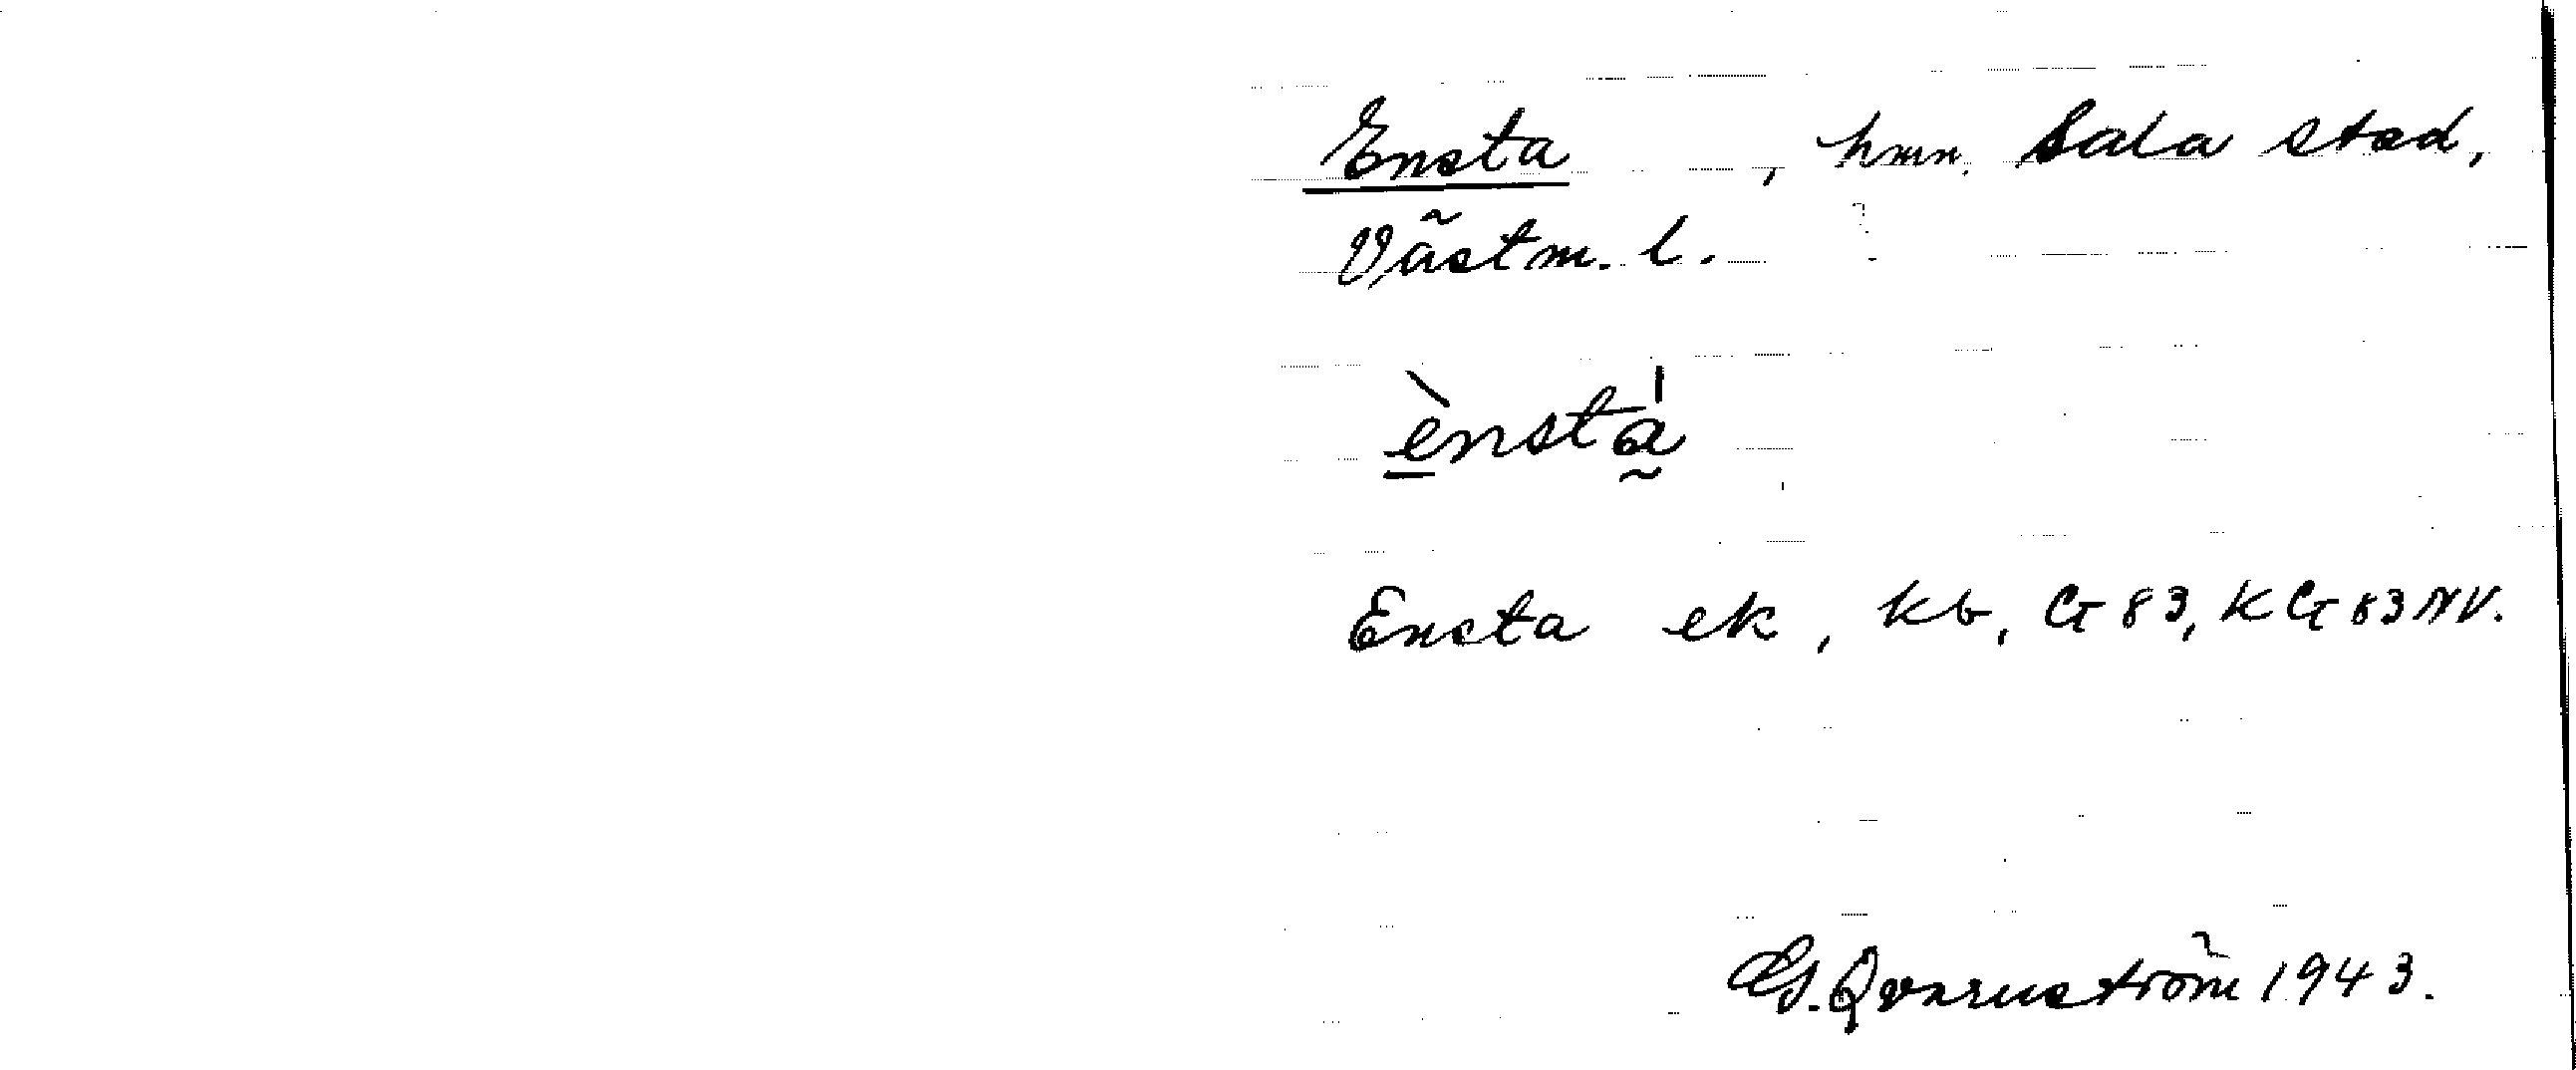 Ensta , hmn. Sala stad,
Västm. l.
ènstà
Ensta ek, kb, G 83, KG 83 NV.
G. Qvarnström 1943.